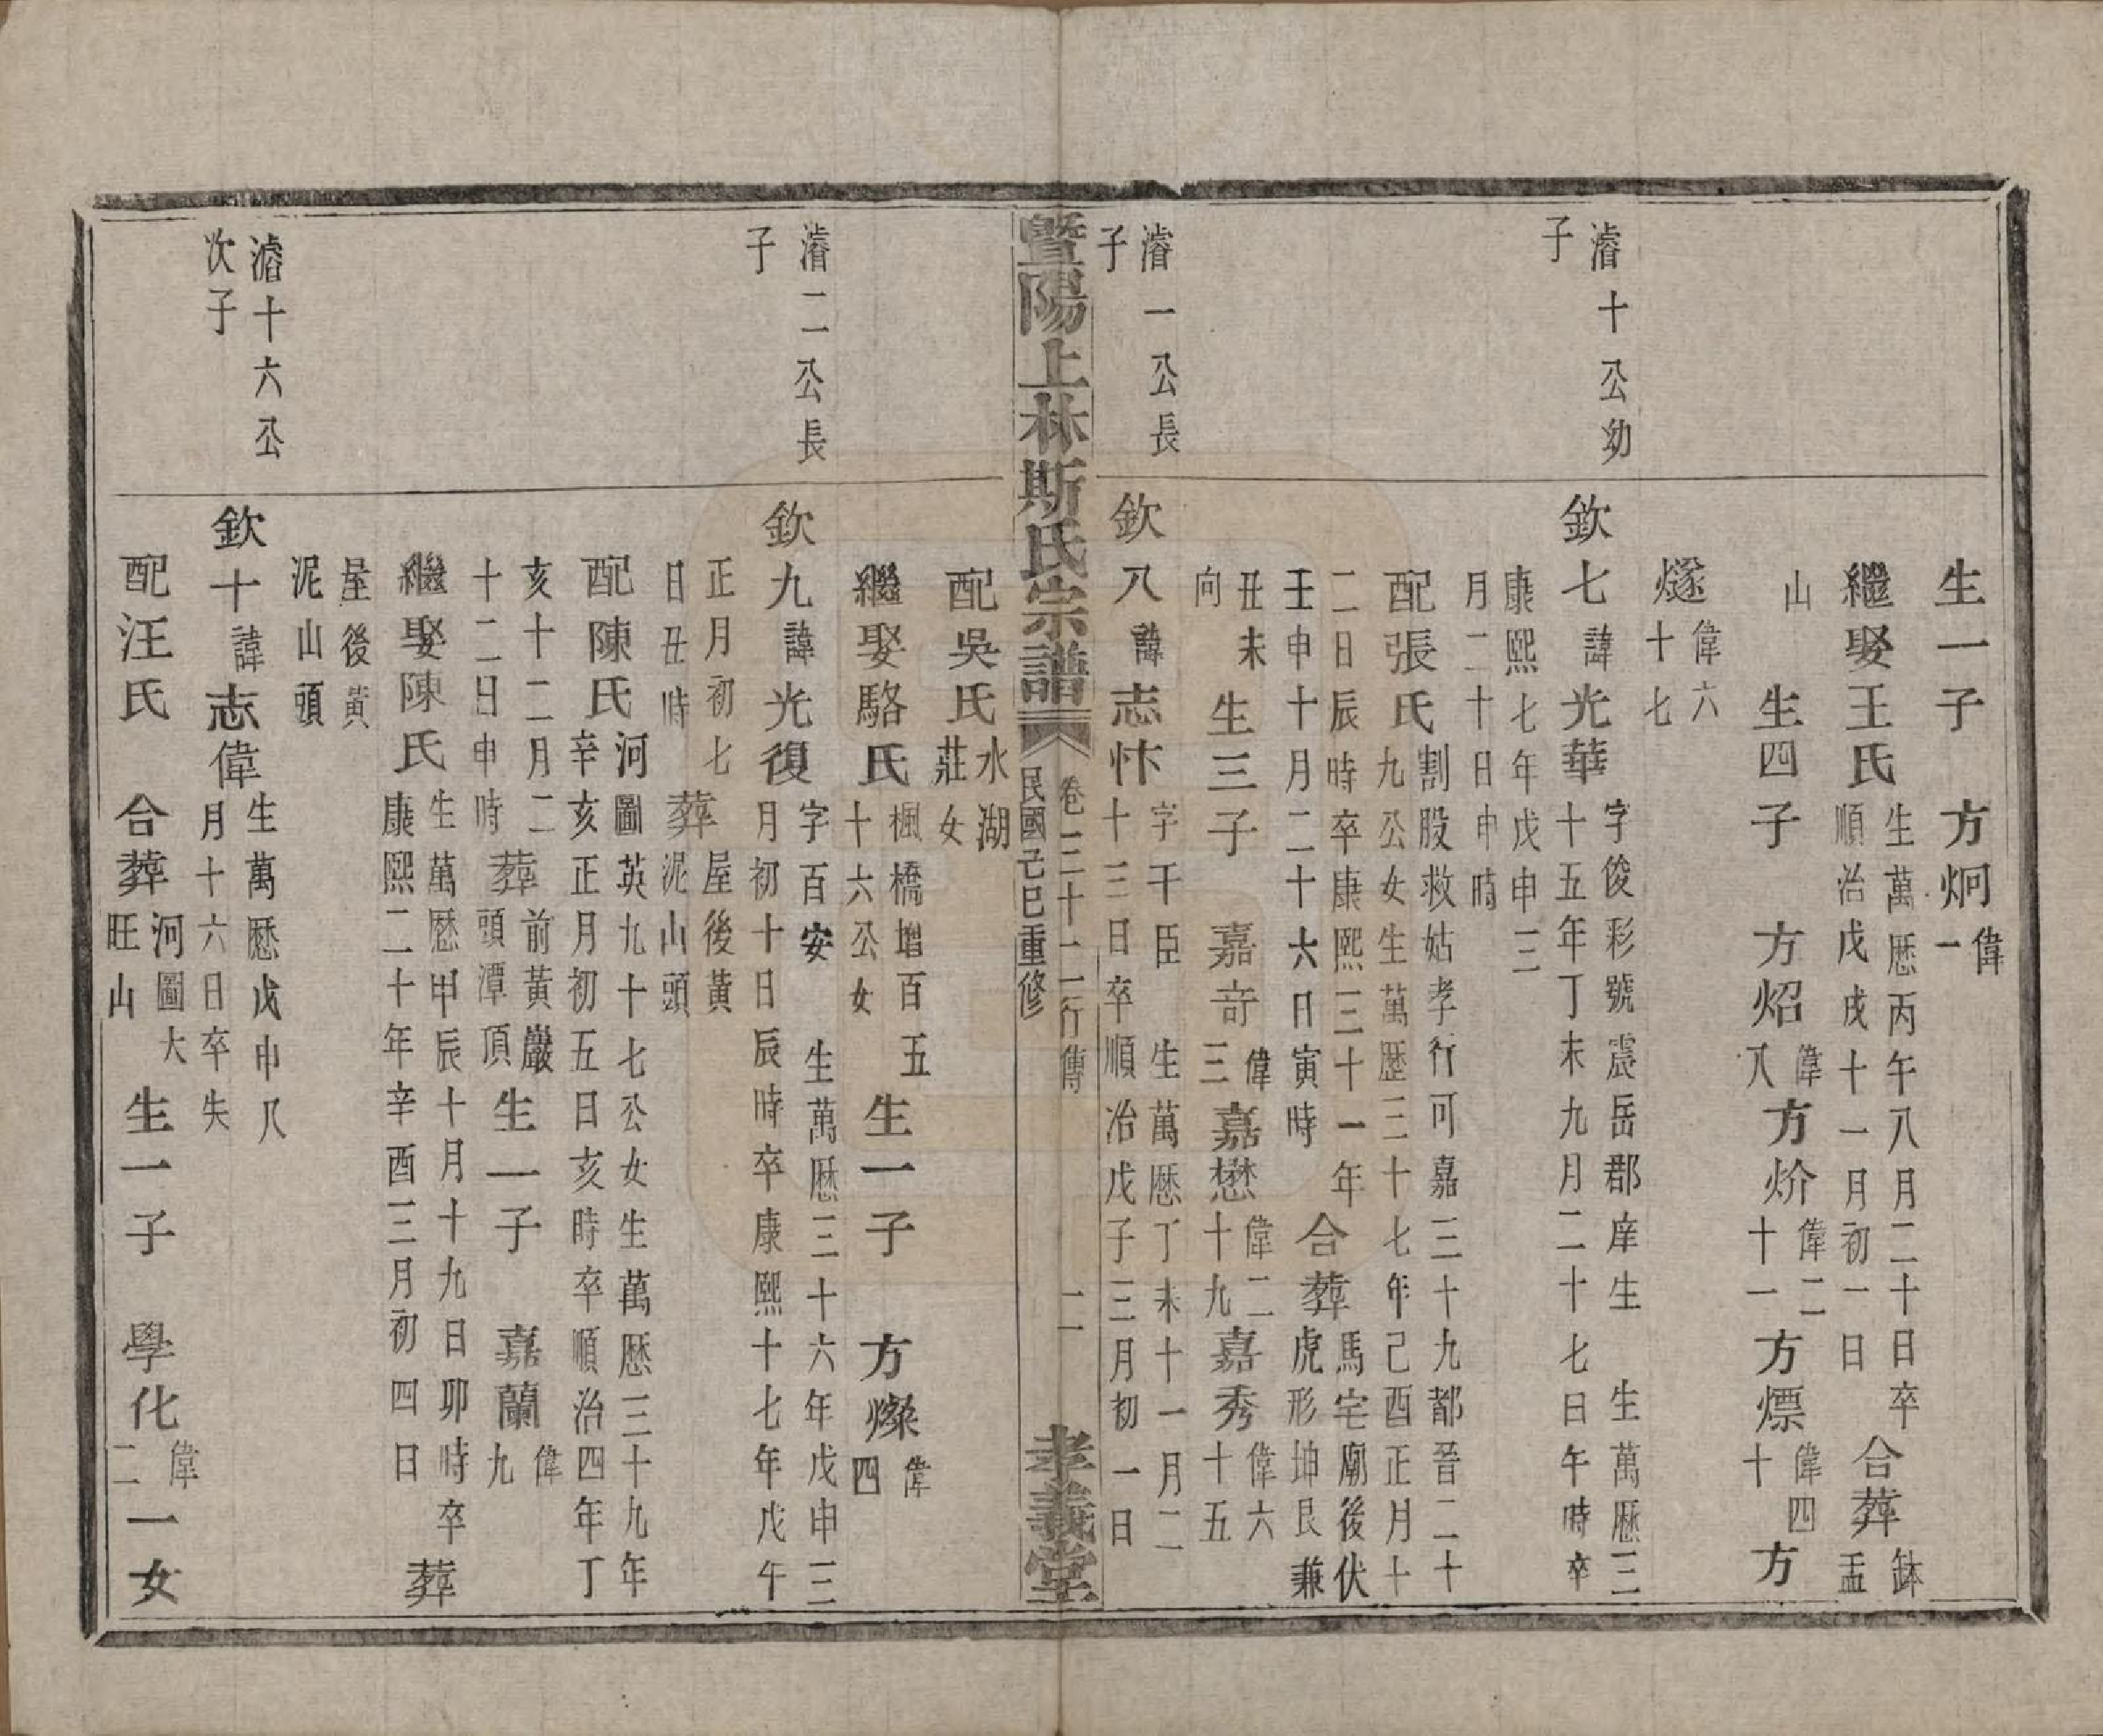 生一子　方炯偉一
繼娶王氏生萬歷丙午八月二十日卒順治戊戌十一月初一日合葬鉢盂
山　生四子　方炤偉八方炌偉二十一方熛偉四十方
燧偉六十七
濬十公幼子
欽七諱光華字俊彩號震岳郡庠生　生萬歷三十五年丁未九月二十七日午時卒
康熙七年戊申三月二十日申時
配張氏割股救姑孝行可嘉三十九都晉二十九公女生萬歷三十七年己酉正月十
二日辰時卒康熙三十一年壬申十月二十六日寅時合葬馬宅廟後伏虎形坤艮兼
丑未向生三子　嘉竒偉三嘉懋偉二十九嘉秀偉六十五
濬一公長子
欽八諱志忭字干臣　生萬歷丁未十一月二十三日卒順治戊子三月初一日
暨陽上林斯氏宗譜　卷三十二行傳　二　民國己巳重修　孝義堂
配吳氏水湖莊女
繼娶駱氏楓橋增百五十六公女生一子　方燦偉四
濬二公長子
欽九諱光復字百安　生萬歷三十六年戊申三月初十日辰時卒康熙十七年戊午
正月初七日丑時葬屋後黃泥山頭
配陳氏河圖英九十七公女生萬歷三十九年辛亥正月初五日亥時卒順治四年丁
亥十二月二十二日申時葬前黃巖頭潭頂生一子　嘉蘭偉九
繼娶陳氏生萬歷甲辰十月十九日卯時卒康熙二十年辛酉三月初四日葬
屋後黃泥山頭
濬十六公次子
欽十諱志偉生萬歷戊申八月十六日卒失
配汪氏　合葬河圖大旺山生一子　學化偉二一女